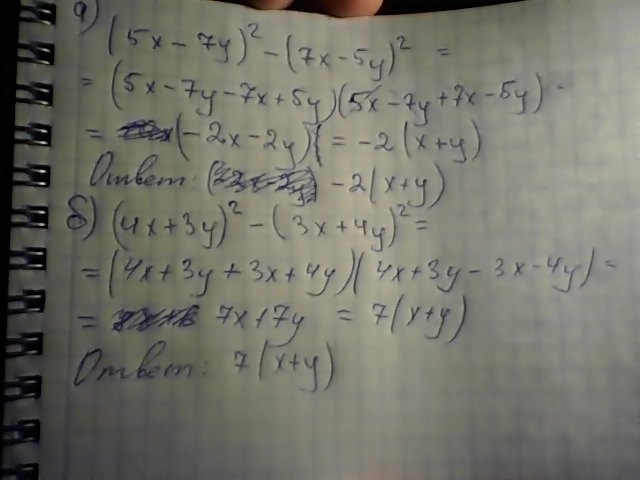 а)
(5x - 7y)² - (7x - 5y)² =
= (5x - 7y - 7x + 5y)(5x - 7y + 7x - 5y) =
= (-2x - 2y)( = -2(x+y)
Ответ: -2(x+y)
б) (4x+3y)² - (3x+4y)² =
= (4x+3y+3x+4y)(4x+3y-3x-4y) =
= 7x+7y = 7(x+y)
Ответ: 7(x+y)